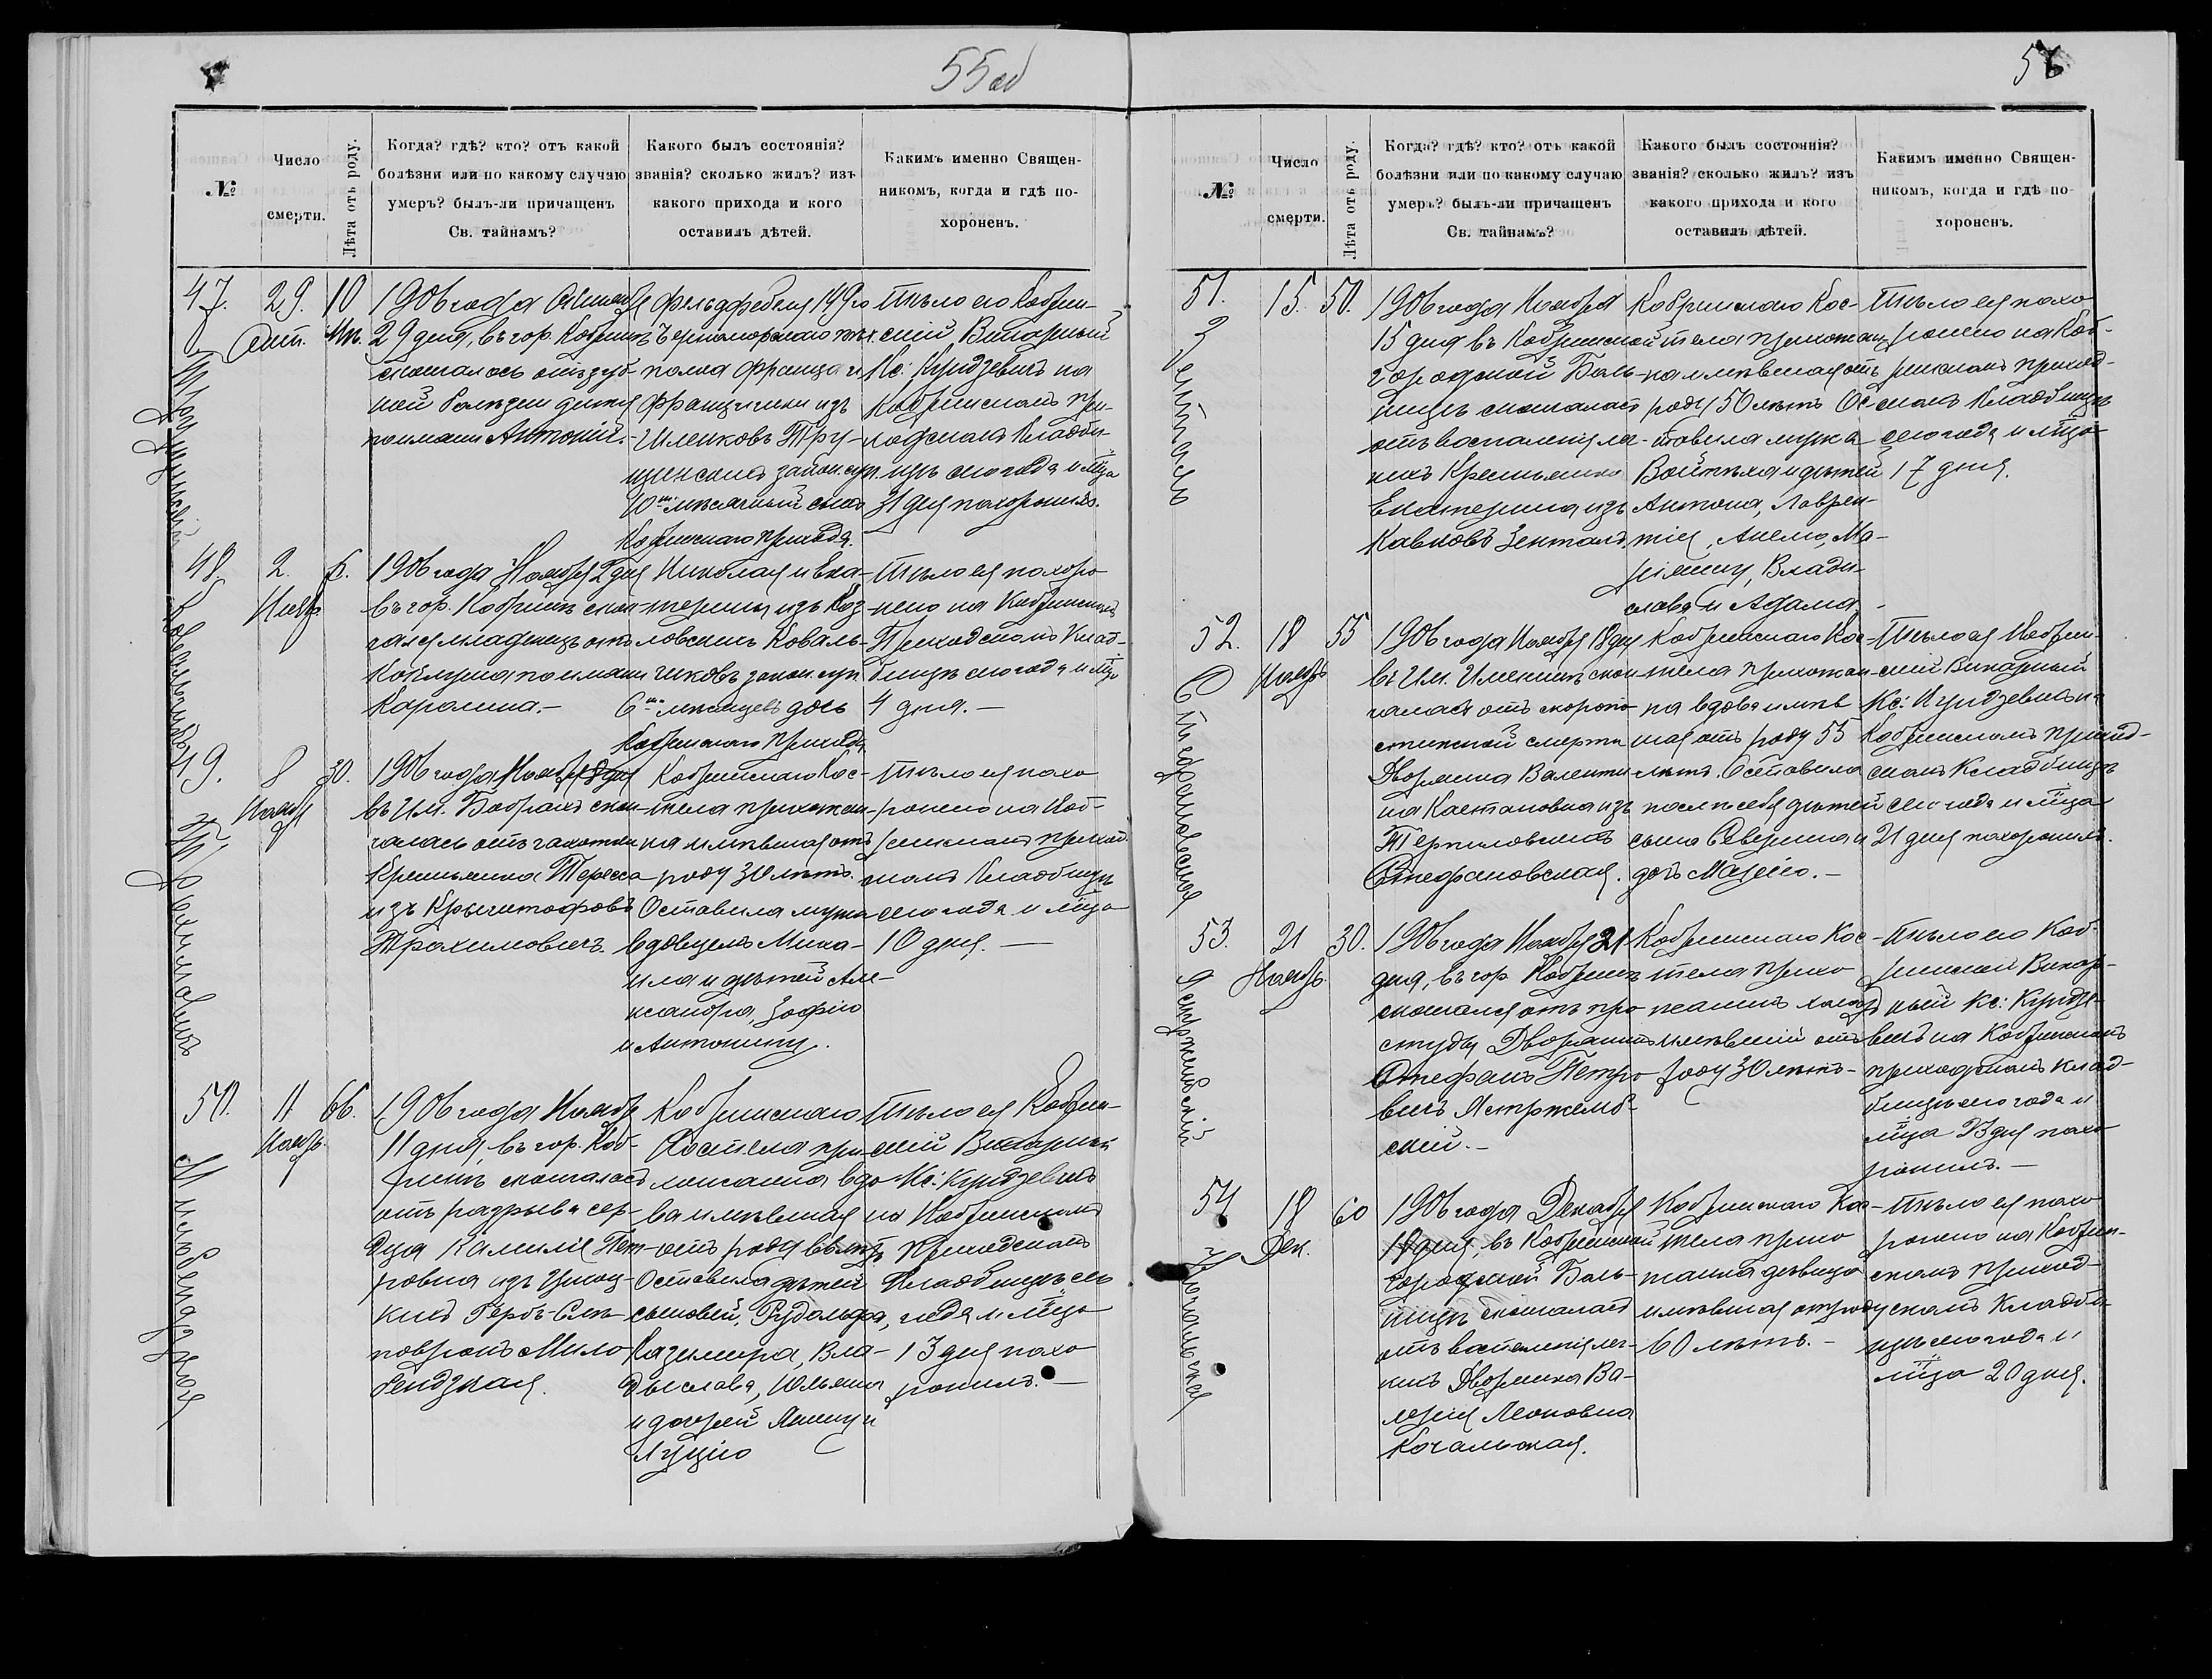 55 об
№
Число
смерти.
Лѣта отъ роду.
Когда? гдѣ? кто? отъ какой
болѣзни или по какому случаю
умеръ? былъ-ли причащенъ
Св. тайнамъ?
Какого былъ состоянія?
званія? сколько жилъ? изъ
какого прихода и кого
оставилъ дѣтей.
Какимъ именно Священ-
никомъ, когда и гдѣ по-
хороненъ.
47.
29.
Окт.
10
Мѣ.
1906 года Октября
29 дня, въ гор. Кобринѣ
скончалось отъ зуб-
ной болѣзни дитя
поимани Антоній.-
Фельдфебеля 149го
Черноморскаго пѣх.
полка Франца и
Францишки изъ
Иленковъ Тру-
щинскихъ закон. суп.
10ти мѣсячный сынъ
Кобринскаго прихода.
Тѣло его Кобрин-
скій Викарный
Кс: Кундзевичъ на
Кобринскомъ при-
ходскомъ кладби-
щѣ сего года и мца
31 дня похоронилъ.
48
2.
Нояб.
6.
1906 года Ноября 2 дня
въ гор. Кобринѣ скон-
чался младенецъ отъ
Коклуша поимани
Каролина.-
Николая и Ека-
терины изъ Коз-
ловскихъ Коваль-
чиковъ закон. суп
6ти мѣсяцевъ дочь
Кобринскаго прихода
Тѣло ея похоро
нено на Кобринскомъ
Приходскомъ Клад-
бищѣ сего года и мца
4 дня.-
Ковальчикъ
49.
8
Ноября
30.
1906 года Ноября 8 дня
въ Им. Бобрахъ скон-
чалась отъ чахотки
Крестьянка Тереса
изъ Крыштофовъ
Трахимовичъ
Кобринскаго Кос-
тела прихожан-
ка имѣвшая отъ
роду 30 лѣтъ.
Оставила мужа
вдовцемъ Миха-
ила и дѣтей Але-
ксандра, Зофію
и Антонину.
Тѣло ея похо
ронено на Коб-
ринскомъ приход-
скомъ Кладбищѣ
сего года и мца
10 дня.-
Трахимовичъ
50.
11
Нояб.
66.
1906 года Ноября
11 дня, въ гор. Коб-
ринѣ скончалась
отъ разрыва сер-
дца Камилія Пет-
ровна изъ
повронъ Мило
бендзкая.
Кобринскаго
Костела при-
хожанка вдо
ва имѣвшая
отъ роду 66 лѣтъ
Оставила дѣтей
сыновей, Рудольфа,
Казимира, Вла-
дыслава, Юльяна
и дочерей Янину и
Луцію
Тѣло ея Кобрин-
скій Викарный
Кс: Кундзевичъ
на Кобринскомъ
Приходскомъ
Кладбищѣ сего
года и мца
13 дня похо
ронилъ.-
Милобендзкая
56
№
Число
смерти.
Лѣта отъ роду.
Когда? гдѣ? кто? отъ какой
болѣзни или по какому случаю
умеръ? былъ-ли причащенъ
Св. тайнамъ?
Какого былъ состоянія?
званія? сколько жилъ? изъ
какого прихода и кого
оставилъ дѣтей.
Какимъ именно Священ-
никомъ, когда и гдѣ по-
хороненъ.
51.
15.
50.
1906 года Ноября
15 дня въ Кобринской
городской Боль-
ницѣ скончалась
отъ воспаленія лег-
кихъ Крестьянка
Екатерина изъ
Кавковъ Зенталь
Кобринскаго Кос-
тела прихожан-
ка имѣвшая отъ
роду 50 лѣтъ Ос-
тавила мужа
Войтѣха и дѣтей
Антона, Лаврен-
тія, Анелю, Ма-
ріянну, Влади-
слава и Адама.
Тѣло ея похо
ронено на Коб-
ринскомъ приход-
скомъ Кладбищѣ
сего года и мца
17 дня.
Зенталь
52.
18
Ноябрь
55
1906 года Ноября 18 дня
въ Им. Именинѣ скон-
чалась отъ скоропо-
стижной смерти
Дворянка Валенти
на Каетановна изъ
Терпиловскихъ
Стефановская.
Кобринскаго Кос-
тела прихожан-
ка вдова имѣв
шая отъ роду 55
лѣтъ. Оставила
послѣ себя дѣтей
сына Северина и
дочь Марію.-
Тѣло ея Кобрин-
скій Викарный
Кс: Кундзевичъ на
Кобринскомъ приход-
скомъ Кладбищѣ
сего года и мца
21 дня похоронилъ.
Стефановская
53.
21
Ноябрь
30.
1906 года Ноября 21
дня, въ гор. Кобринѣ
скончался отъ про-
студы Дворянинъ
Стефанъ Петро
вичъ Ястржемб-
скій.-
Кобринскаго Кос-
тела прихо
жанинъ
имѣвшій отъ
роду 30 лѣтъ-
Тѣло его Коб-
ринскій Викар-
ный Кс: Кундзе-
вичъ на Кобринскомъ
приходскомъ клад-
бищѣ сего года и
мца 23 дня похо
ронилъ.-
Ястржембскій
54
18
Дек.
60
1906 года Декабря
18 дня, въ Кобринской
городской Боль-
ницѣ скончалась
отъ воспаленія лег-
кихъ Дворянка Ва-
лерія Леоновна
Качальская.
Кобринскаго Кос-
тела прихо
жанка дѣвица
имѣвшая отъ роду
60 лѣтъ.-
Тѣло ея похо
ронено на Кобрин-
скомъ приход-
скомъ Кладби-
щѣ сего года и
мца 20 дня.